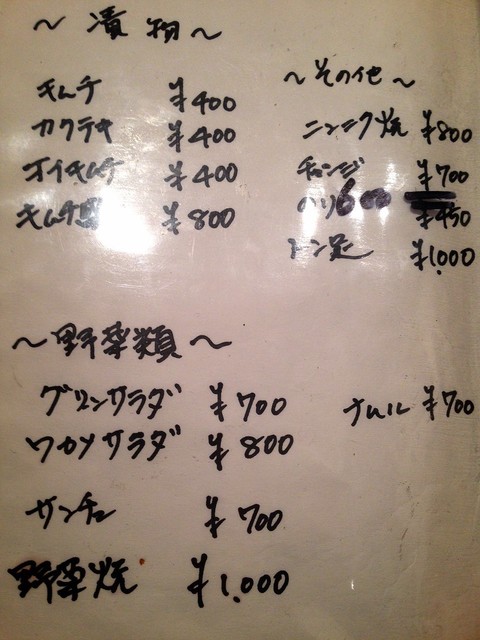 〜漬物〜
キムチ ¥400
カクテキ ¥400
オイキムチ ¥400
キムチ盛 ¥800
〜その他〜
ニンニク焼 ¥800
チャンジャ ¥700
のり 600 ¥450
トン足 ¥1,000
〜野菜類〜
グリーンサラダ ¥700
ワカメサラダ ¥800
サンチュ ¥700
野菜焼 ¥1,000
ナムル ¥700